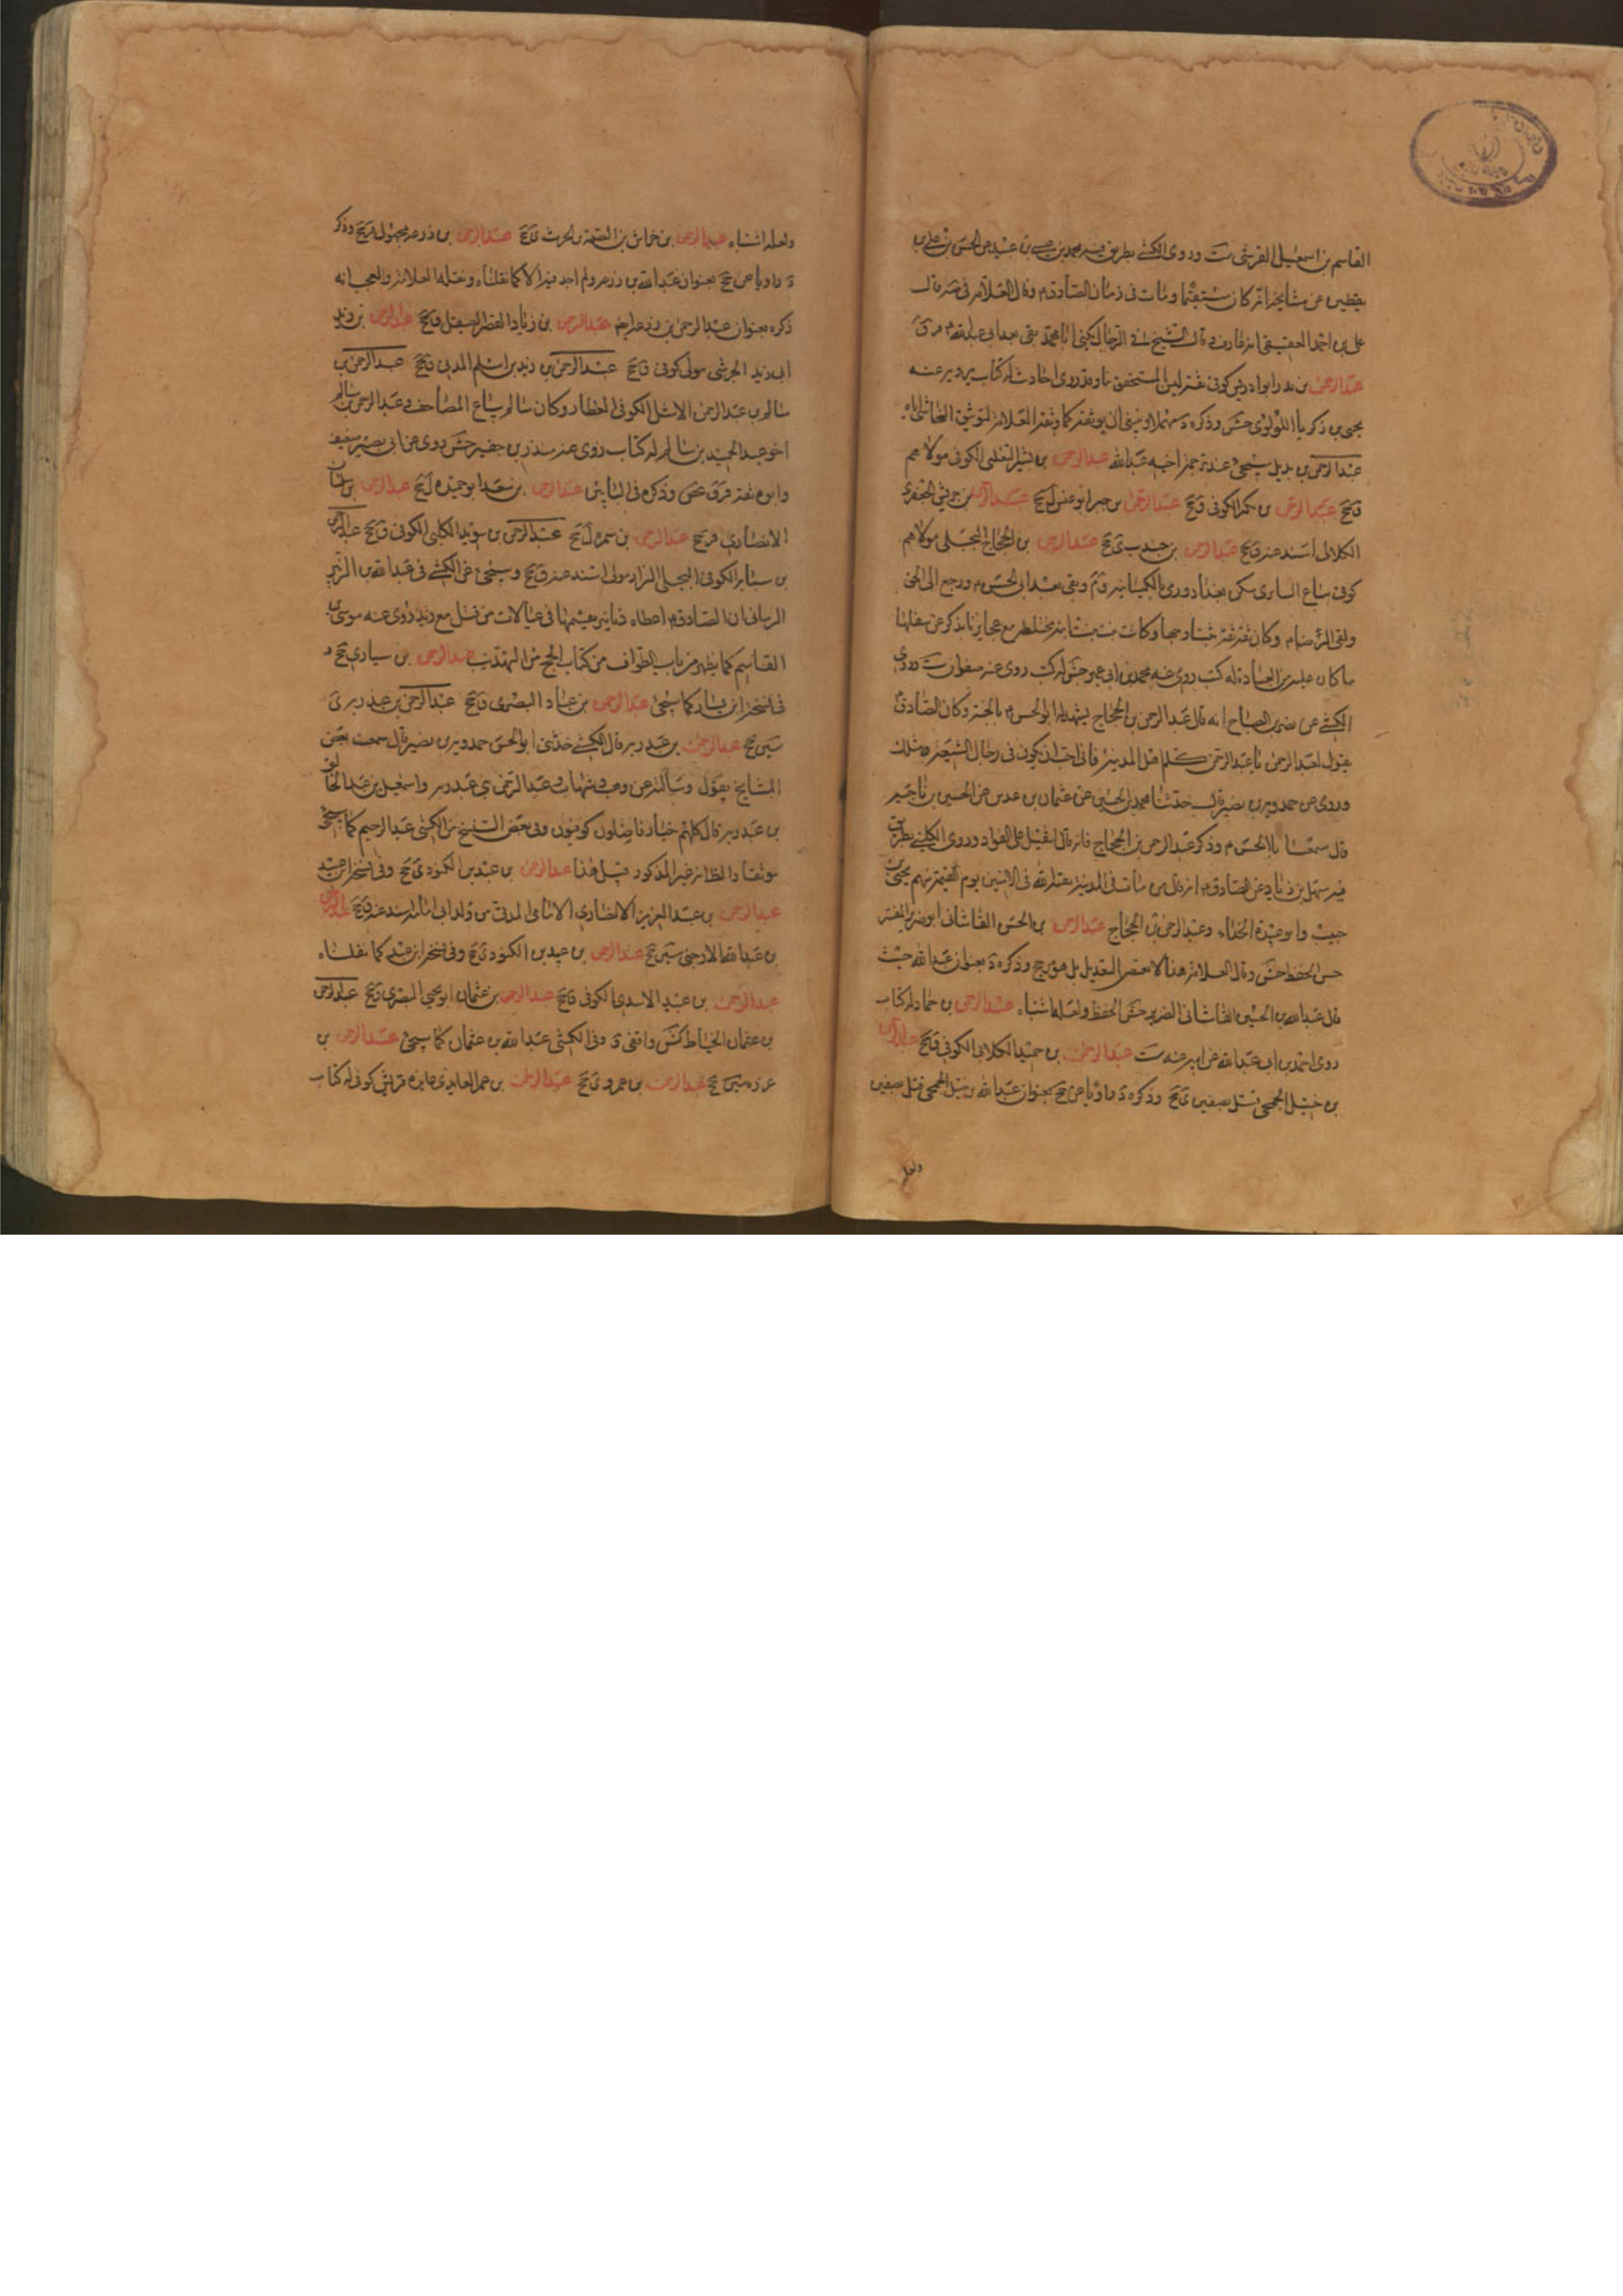 القاسم بن اسمعيل القرشى ست وروى الكشى بطريق فيه محمد بن عيسى بن عبيد عن الحسن بن على بن
يقطين عن مشايخه انه كان مستقيما ومات فى زمان الصادق م وقال العلامه فى قال
على بن احمد العقيقى انه عارف وقال الشيخ فى الرجال يكنى ابا محمد بقى بعد ابى عبد الله م
عبد الرحمن بن بدر ابو ادريس كوفى ثقه ليس بالمتحقق بنا وقد روى احاديث له كتاب يرويه عنه
يحيى بن زكريا اللولوى جش وذكره د مهملا وينبغى ان يوثقه كما وثقه العلامه لتوثيق النجاشى اياه
عبد الرحمن بن بديل سيجئ عند ترجمة اخيه عبد الله عبد الرحمن بن بشير التغلبى الكوفى مولاهم
ق جخ عبد الرحمن بن الكوفى ق جخ عبد الرحمن بن جبر ابو عبس ل جخ عبد الرحمن بن الجعفرى
الكلابى اسند عنه ق جخ عبد الرحمن بن جندب ى جخ عبد الرحمن بن الحجاج البجلى مولاهم
كوفى بياع السابرى سكن بغداد ورمى بالكيسانيه ق م وبقى بعد ابى الحسن م ورجع الى الحق
ولقى الرضا م وكان ثقه ثقه ثبتا وجها وكانت بنت بنت ابنه مختلطه مع عجايزنا تذكر عن سلفها
ما كان عليه من العبادة له كتب روى عنه محمد بن ابى عمير جش له كتب روى عنه صفوان ست وروى
الكشى عن نصر بن الصباح انه قال عبد الرحمن بن الحجاج يشهد له ابو الحسن م بالجنه وكان الصادق
يقول لعبد الرحمن يا عبد الرحمن كلم اهل المدينه فانى احب ان يكون فى رجال الشيعه مثلك
وروى عن حمدويه بن نصير قال حدثنا محمد بن الحسين عن عثمان بن عدس عن الحسين بن ناجيه
قال سمعت ابا الحسن م وذكر عبد الرحمن بن الحجاج فانه قال انه لثقيل على الفؤاد وروى الكلينى بطريق
فيه سهل بن زياد عن الصادق م انه قال من مات فى المدينه بعثه الله فى الامنين يوم القيمه منهم يحيى بن
حبيب وابو عبيدة الحذاء وعبد الرحمن بن الحجاج عبد الرحمن بن الحسن القاشانى ابو الضرير المفسر
حسن الحفظ جش وقال العلامه هذا لا يقتضى التعديل بل هو مرجح وذكره د بعنوان عبد الله حيث
قال عبد الله بن الحسين القاشانى الضرير جش حسن الحفظ ولعله اشتباه عبد الرحمن بن حماد له كتاب
روى احمد بن ابى عبد الله عن ابيه عنه ست عبد الرحمن بن حميد الكلابى الكوفى ق جخ عبد الرحمن
بن حنبل الجمحى قتل بصفين ى جخ وذكره د راويا عن جخ بعنوان عبد الله بن حنبل الجمحى قتل بصفين
ولعله
ولعله اشتباه عبد الرحمن بن خراش بن الصمة بن الحرث ى جخ عبد الرحمن بن زرعه مجهول قر جخ وذكر
د راويا عن جخ بعنوان عبد الله بن زرعه ولم اجد فيه الا كما نقلناه ونقله العلامه والعجب انه
ذكره بعنوان عبد الرحمن بن زرعه ايضا عبد الرحمن بن زياد القصير الصيقل ق جخ عبد الرحمن بن زيد
ابى زيد الجرشى مولى كوفى ق جخ عبد الرحمن بن زيد بن اسلم المدنى ق جخ عبد الرحمن بن
سالم بن عبد الرحمن الاشل الكوفى العطار وكان سالم بياع المصاحف وعبد الرحمن بن سالم
اخو عبد الحميد بن سالم له كتاب روى عنه منذر بن جفير جش روى عن ابى بصير ضعيف
وابوه ثقه وذكره فى البابين عبد الرحمن بن سعد ابو حميد ل جخ عبد الرحمن بن
الانصارى قر جخ عبد الرحمن بن سمرة ل جخ عبد الرحمن بن سويد الكلبى الكوفى ق جخ عبد الرحمن
بن سيابه الكوفى البجلى البزاز مولى اسند عنه ق جخ وسيجئ عن الكشى فى عبد الله بن الزبير
الرسانى ان الصادق م اعطاه دنانير يقسمها فى عيالات من قتل مع زيد روى عنه موسى بن
القاسم كما يظهر من باب الطواف من كتاب الحج من التهذيب عبد الرحمن بن سيار ى جخ و
فى نسخة ابن يسار كما سيجئ عبد الرحمن بن عباد البصرى ق جخ عبد الرحمن بن عبد ربه ى
سين جخ عبد الرحمن بن عبد ربه قال الكشى حدثنى ابو الحسن حمدويه بن نصير قال سمعت بعض
المشايخ يقول وسألته عن وهب وشهاب وعبد الرحمن بنى عبد ربه واسمعيل بن عبد الخالق
بن عبد ربه قال كلهم خيار فاضلون كوفيون وفى بعض النسخ من الكشى عبد الرحيم كما سيجئ
موثقا والظاهر غير المذكور قبيل هذا عبد الرحمن بن عبد بن الكنود ى جخ وفى نسخة ابن عبيد
عبد الرحمن بن عبد العزيز الانصارى الامامى المدنى من ولد ابى امامه اسند عنه ق جخ عبد الرحمن
بن عبد الله الارحبى سين جخ عبد الرحمن بن عبيد بن الكنود ى جخ وفى نسخة ابن عبد كما نقلناه
عبد الرحمن بن عبيد الاسدى الكوفى ق جخ عبد الرحمن بن عثمان ابو يحيى البصرى ق جخ عبد الرحمن
بن عثمان الخياط كش واقفى د وفى الكشى عبد الله بن عثمان كما سيجئ عبد الرحمن بن
عزره سين جخ عبد الرحمن بن عمرو ى جخ عبد الرحمن بن عمر العايذى عايذة قريش كوفى له كتاب